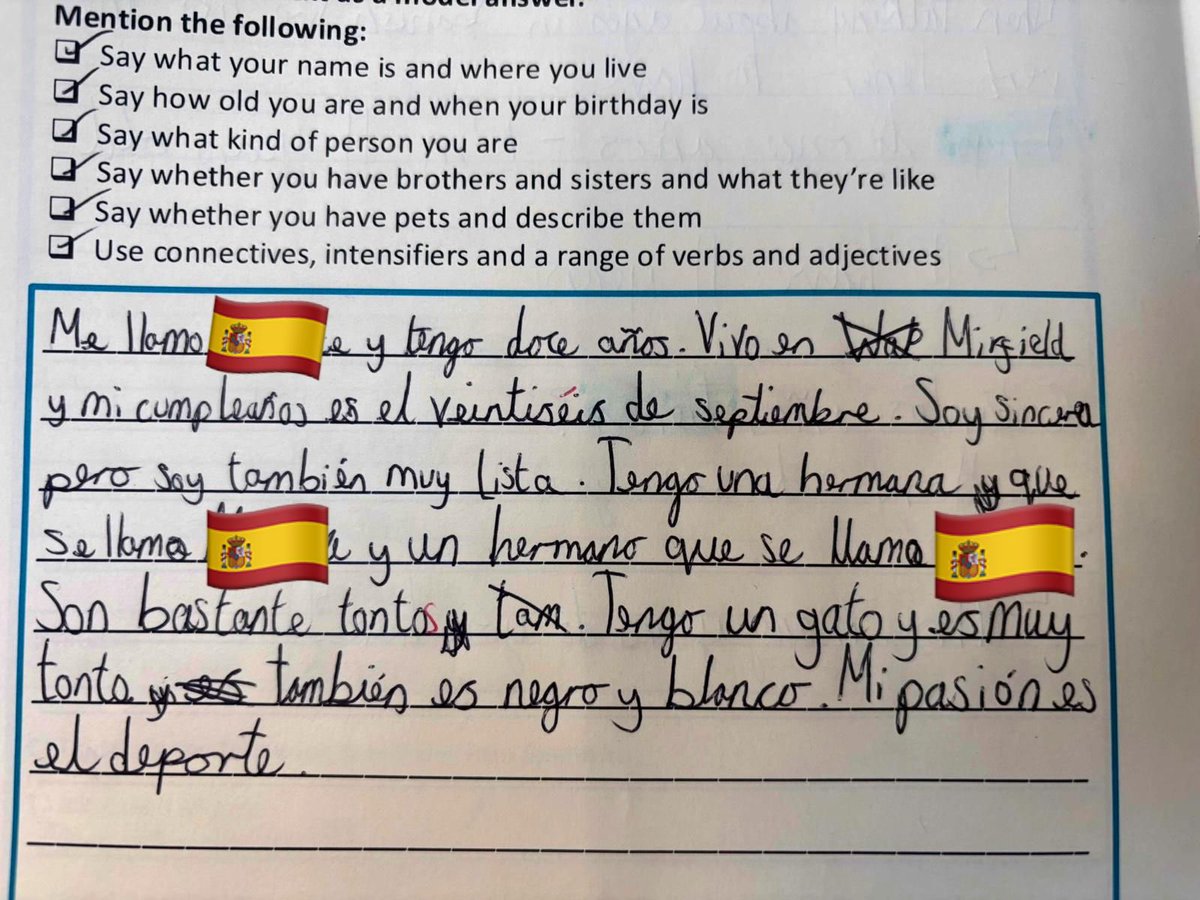 Mention the following:
Say what your name is and where you live
Say how old you are and when your birthday is
Say what kind of person you are
Say whether you have brothers and sisters and what they're like
Say whether you have pets and describe them
Use connectives, intensifiers and a range of verbs and adjectives
Me llamo e y tengo doce años. Vivo en Mirfield
y mi cumpleaños es el veintiséis de septiembre. Soy sincera
pero soy también muy lista. Tengo una hermana que
se llama a y un hermano que se llama .
Son bastante tontos . Tengo un gato y es muy
tonto y también es negro y blanco. Mi pasión es
el deporte.